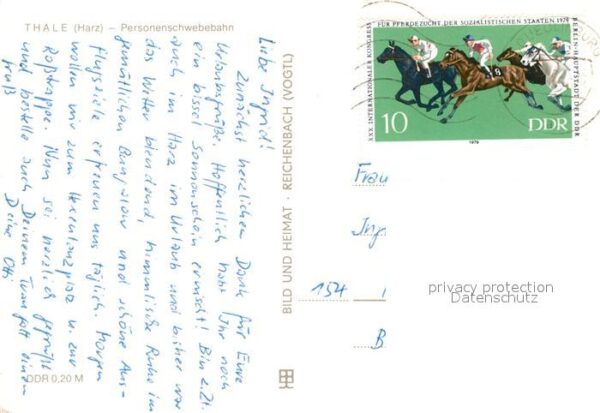 THALE (Harz) – Personenschwebebahn
Liebe Ingrid!
Zunächst herzlichen Dank für Eure
Urlaubsgrüße. Hoffentlich habt Ihr noch
ein bissel Sonnenschein erwischt! Bin z.Zt.
auch im Harz im Urlaub und bisher war
das Wetter blendend, himmlische Ruhe im
gemütlichen Bungalow und schöne Aus-
flugsziele erfreuen uns täglich. Morgen
wollen wir zum Hexentanzplatz u. zur
Roßtrappe. Nun sei herzlich gegrüßt
und bestelle auch Deinem einen
Gruß
Deine
DDR 0,20 M
BILD UND HEIMAT · REICHENBACH (VOGTL)
XXX. INTERNATIONALER KONGRESS
FÜR PFERDEZUCHT DER SOZIALISTISCHEN STAATEN 1979
BERLIN-HAUPTSTADT DER DDR
8
10
DDR
1979
Frau
Ing.
154
B
privacy protection
Datenschutz